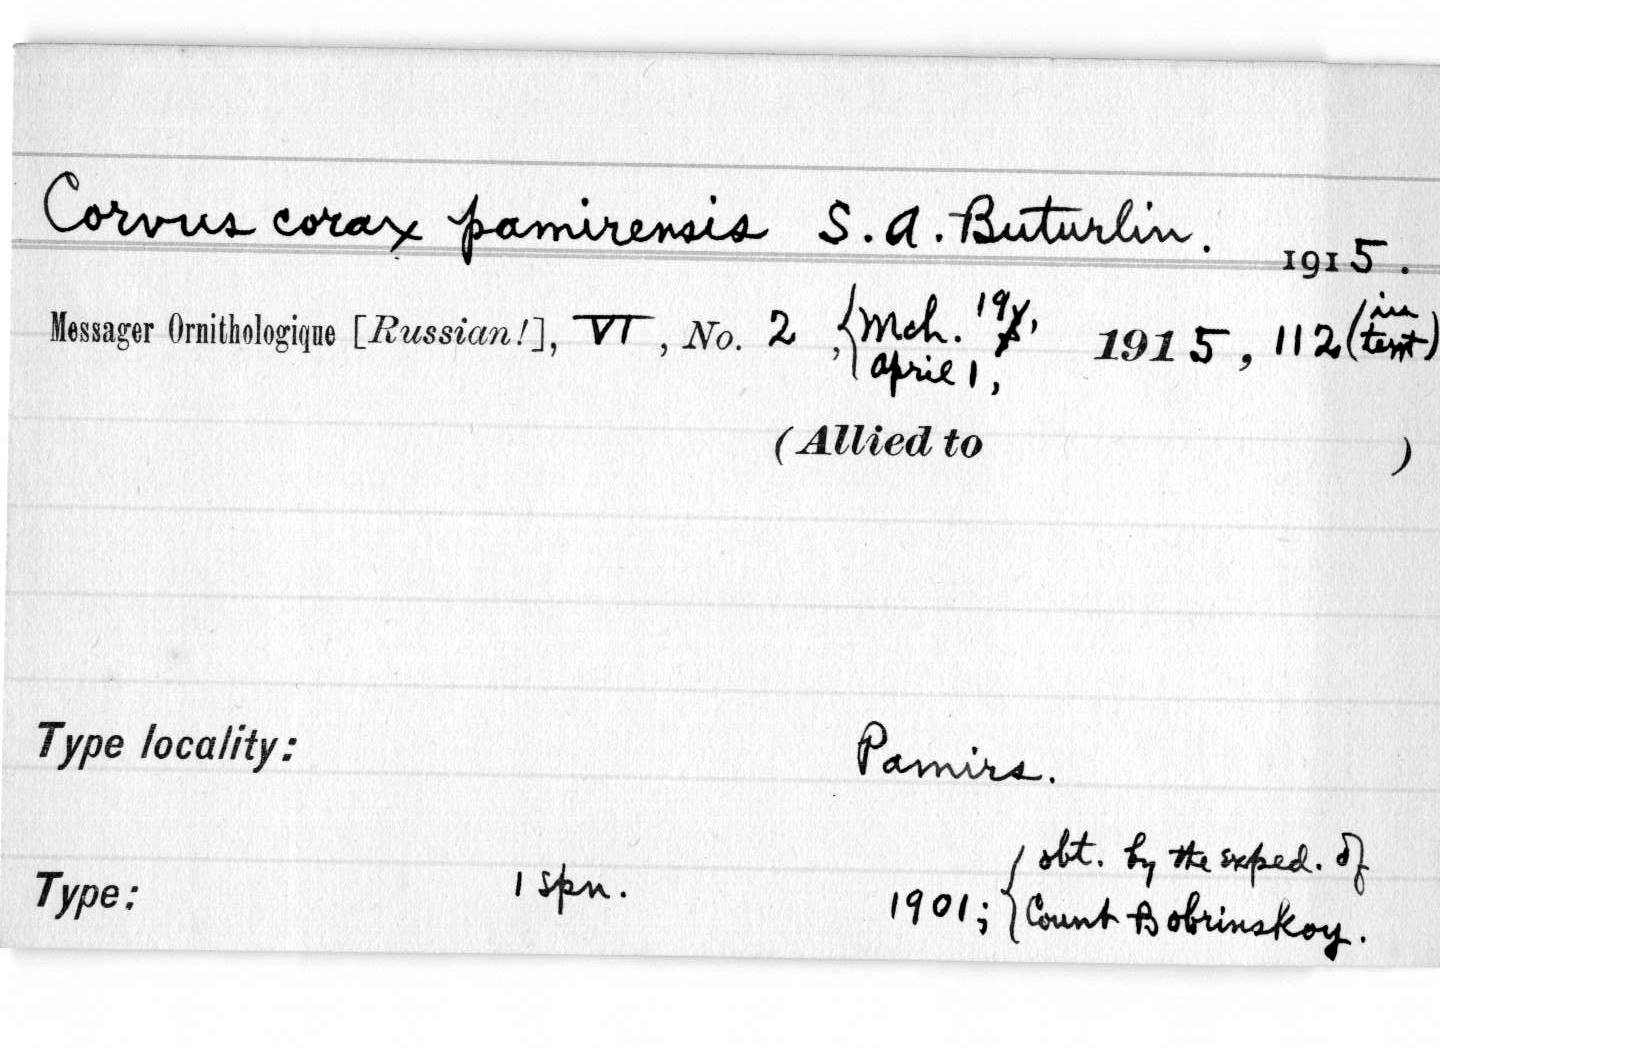 Corvus corax pamirensis S. A. Buturlin. 1915.
Messager Ornithologique [Russian!], VI, No. 2, {Mch. 19, April 1, 1915, 112 (in text)
(Allied to )
Type locality: Pamirs.
Type: 1 spn. 1901; {obt. by the exped. of
Count Bobrinskoy.